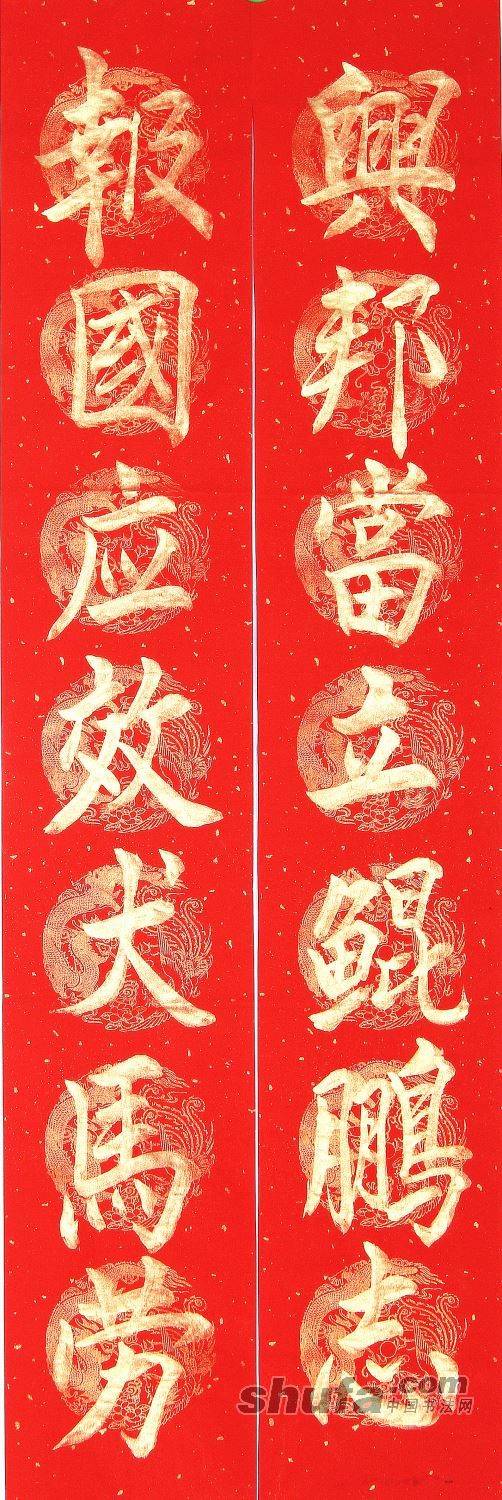 興邦當立鯤鵬志
報國应效犬馬劳
shufa.com
中国书法网